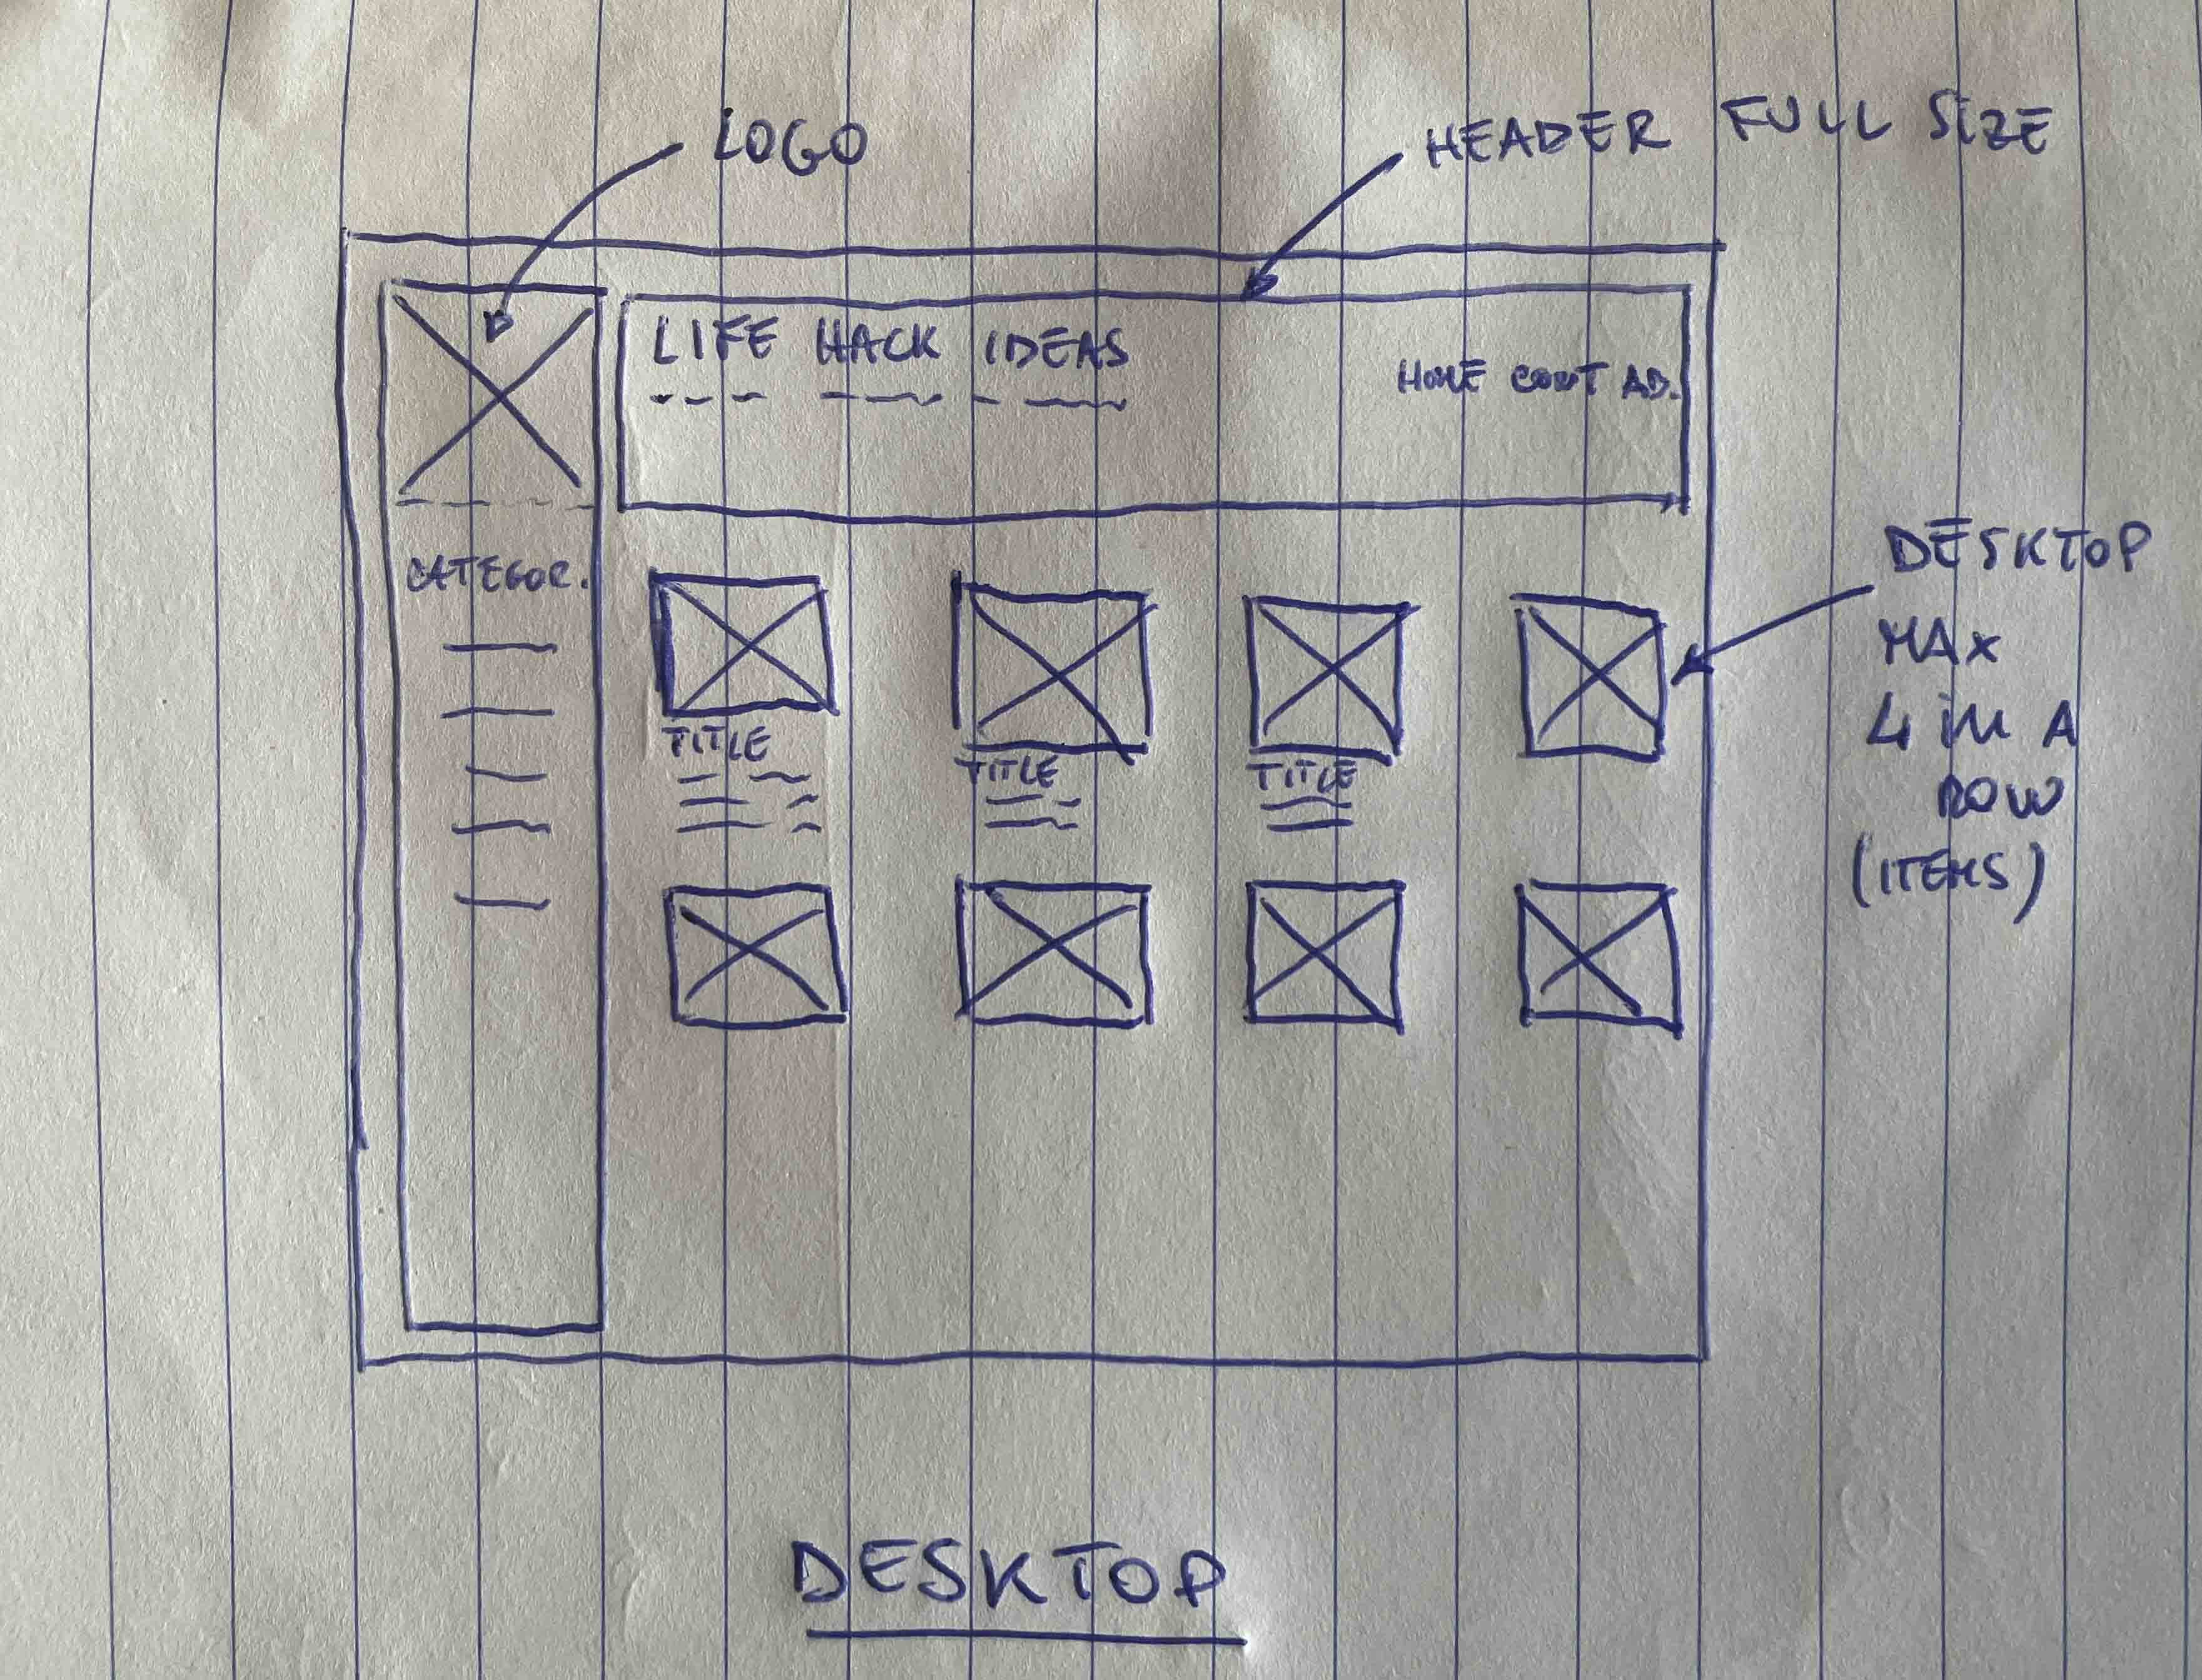 LOGO
HEADER FULL SIZE
LIFE HACK IDEAS
HOME CONT AB.
CATEGOR.
TITLE
TITLE
TITLE
DESKTOP
MAX
4 IN A
ROW
(ITEMS)
DESKTOP